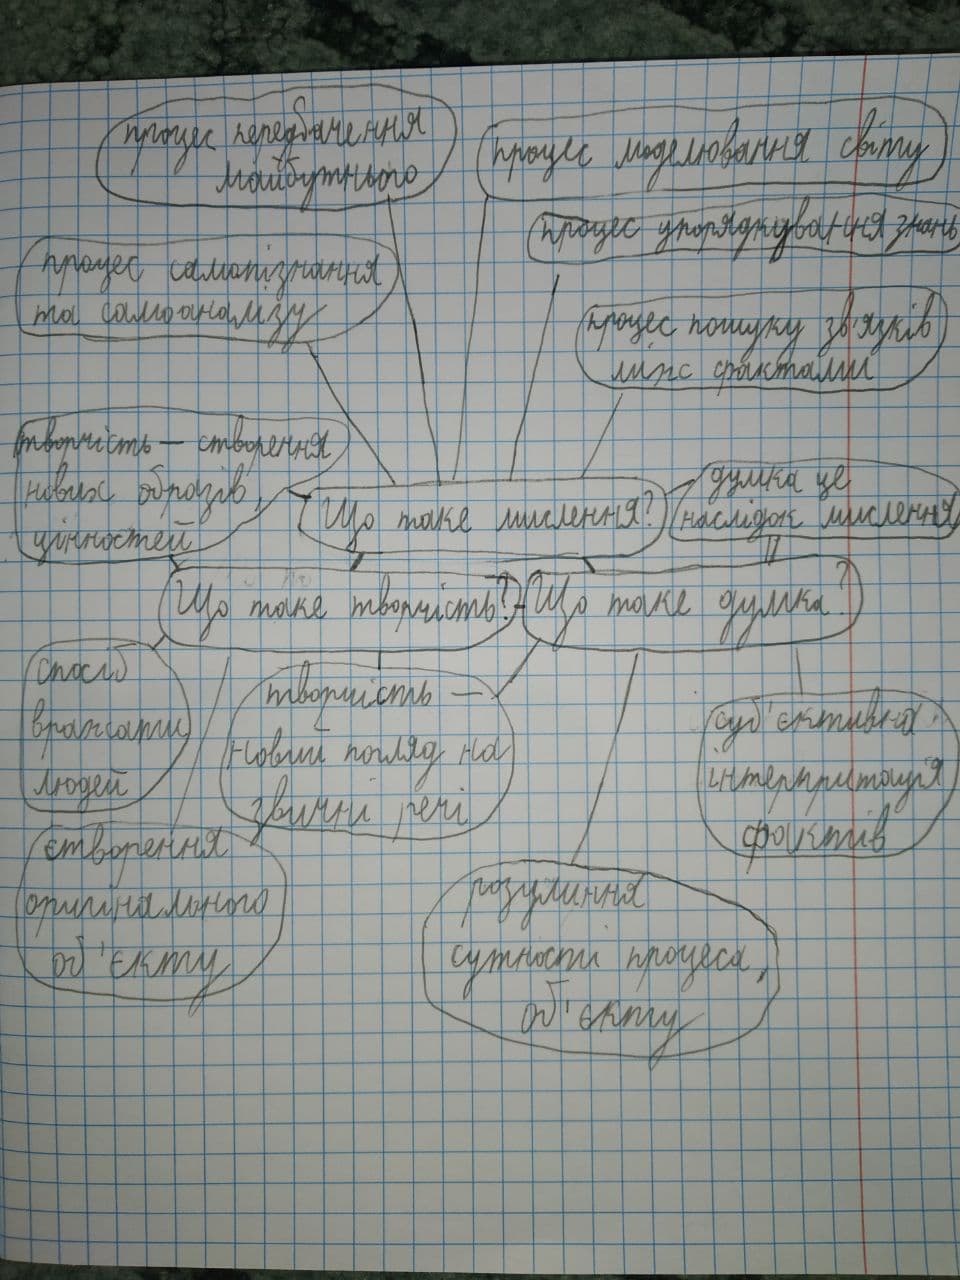 процес передбачення
майбутнього
процес моделювання світу
процес упорядкування знань
процес самопізнання
та самоаналізу
процес пошуку зв'язків
між фактами
творчість — створення
нових образів,
цінностей
Що таке мислення?
думка це
наслідок мислення
Що таке творчість?
Що таке думка?
спосіб
вражати
людей
творчість —
новий погляд на
звични речі
суб'єктивна
інтерпритація
фактів
створення
оригінального
об'єкту
розуминня
сутності процеса,
об'єкту